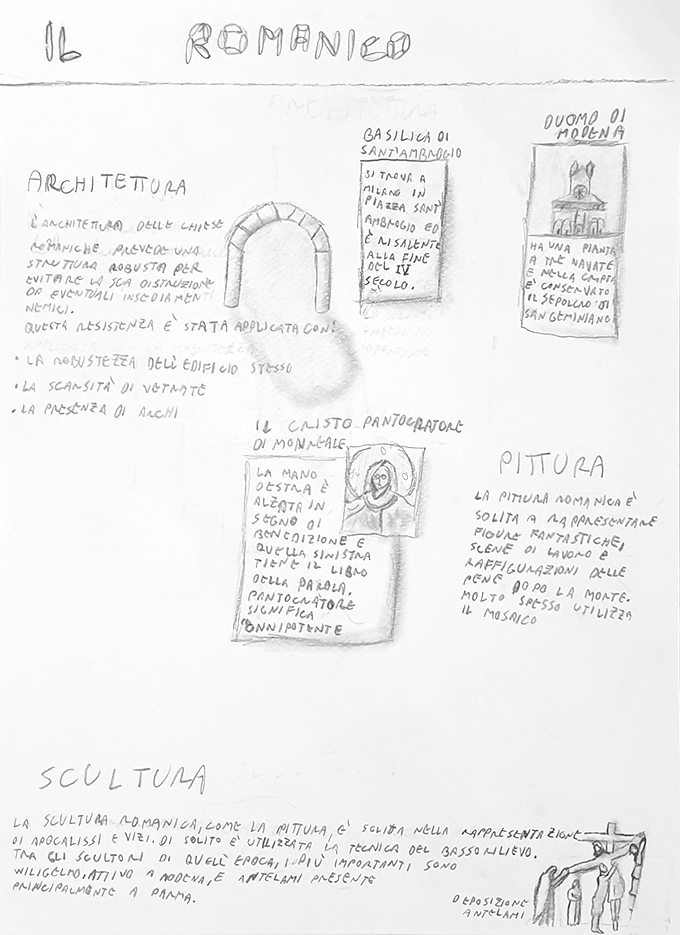 IL ROMANICO
ARCHITETTURA
L'ARCHITETTURA DELLE CHIESE
ROMANICHE PREVEDE UNA
STRUTTURA ROBUSTA PER
EVITARE LA SUA DISTRUZIONE
DA EVENTUALI INSEDIAMENTI
NEMICI.
QUESTA RESISTENZA È STATA APPLICATA CON:
• LA ROBUSTEZZA DELL'EDIFICIO STESSO
• LA SCARSITÀ DI VETRATE
• LA PRESENZA DI ARCHI
BASILICA DI
SANT'AMBROGIO
SI TROVA A
MILANO IN
PIAZZA SANT'
AMBROGIO ED
È RISALENTE
ALLA FINE
DEL IV
SECOLO.
DUOMO DI
MODENA
HA UNA PIANTA
A TRE NAVATE
E NELLA CRIPTA
È CONSERVATO
IL SEPOLCRO DI
SAN GEMINIANO
IL CRISTO PANTOCRATORE
DI MONREALE
LA MANO
DESTRA È
ALZATA IN
SEGNO DI
BENEDIZIONE E
QUELLA SINISTRA
TIENE IL LIBRO
DELLA PAROLA.
PANTOCRATORE
SIGNIFICA
"ONNIPOTENTE
PITTURA
LA PITTURA ROMANICA È
SOLITA A RAPPRESENTARE
FIGURE FANTASTICHE,
SCENE DI LAVORO E
RAFFIGURAZIONI DELLE
PENE DOPO LA MORTE.
MOLTO SPESSO UTILIZZA
IL MOSAICO
SCULTURA
LA SCULTURA ROMANICA, COME LA PITTURA, È SOLITA NELLA RAPPRESENTAZIONE
DI APOCALISSI E VIZI. DI SOLITO È UTILIZZATA LA TECNICA DEL BASSORILIEVO.
TRA GLI SCULTORI DI QUELL'EPOCA, I PIÙ IMPORTANTI SONO
WILIGELMO, ATTIVO A MODENA, E ANTELAMI PRESENTE
PRINCIPALMENTE A PARMA.
DEPOSIZIONE
ANTELAMI